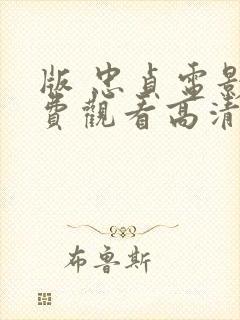 版 忠貞電影
費觀看高清
布魯斯